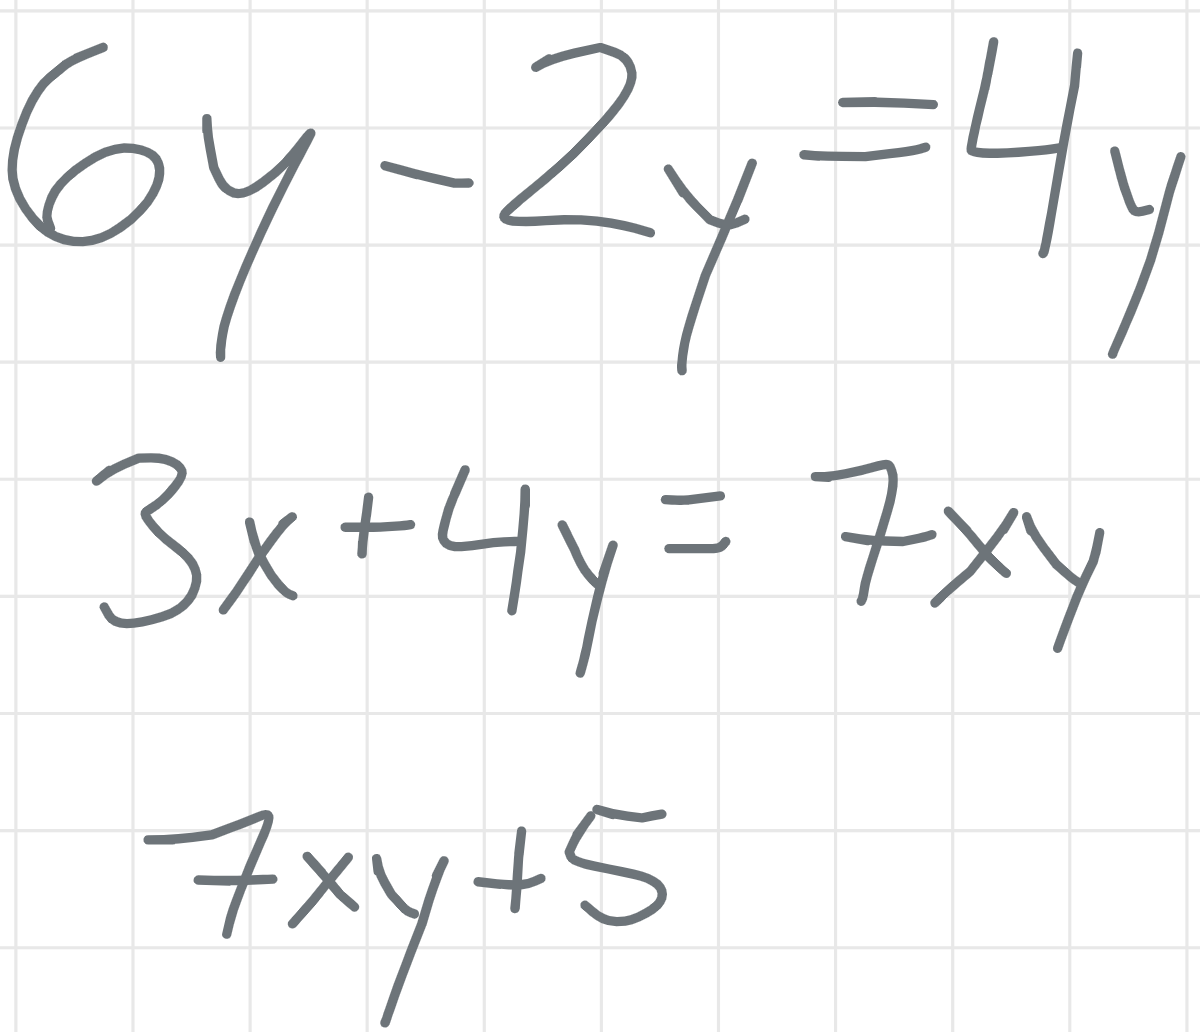 6y - 2y = 4y
3x + 4y = 7xy
7xy + 5